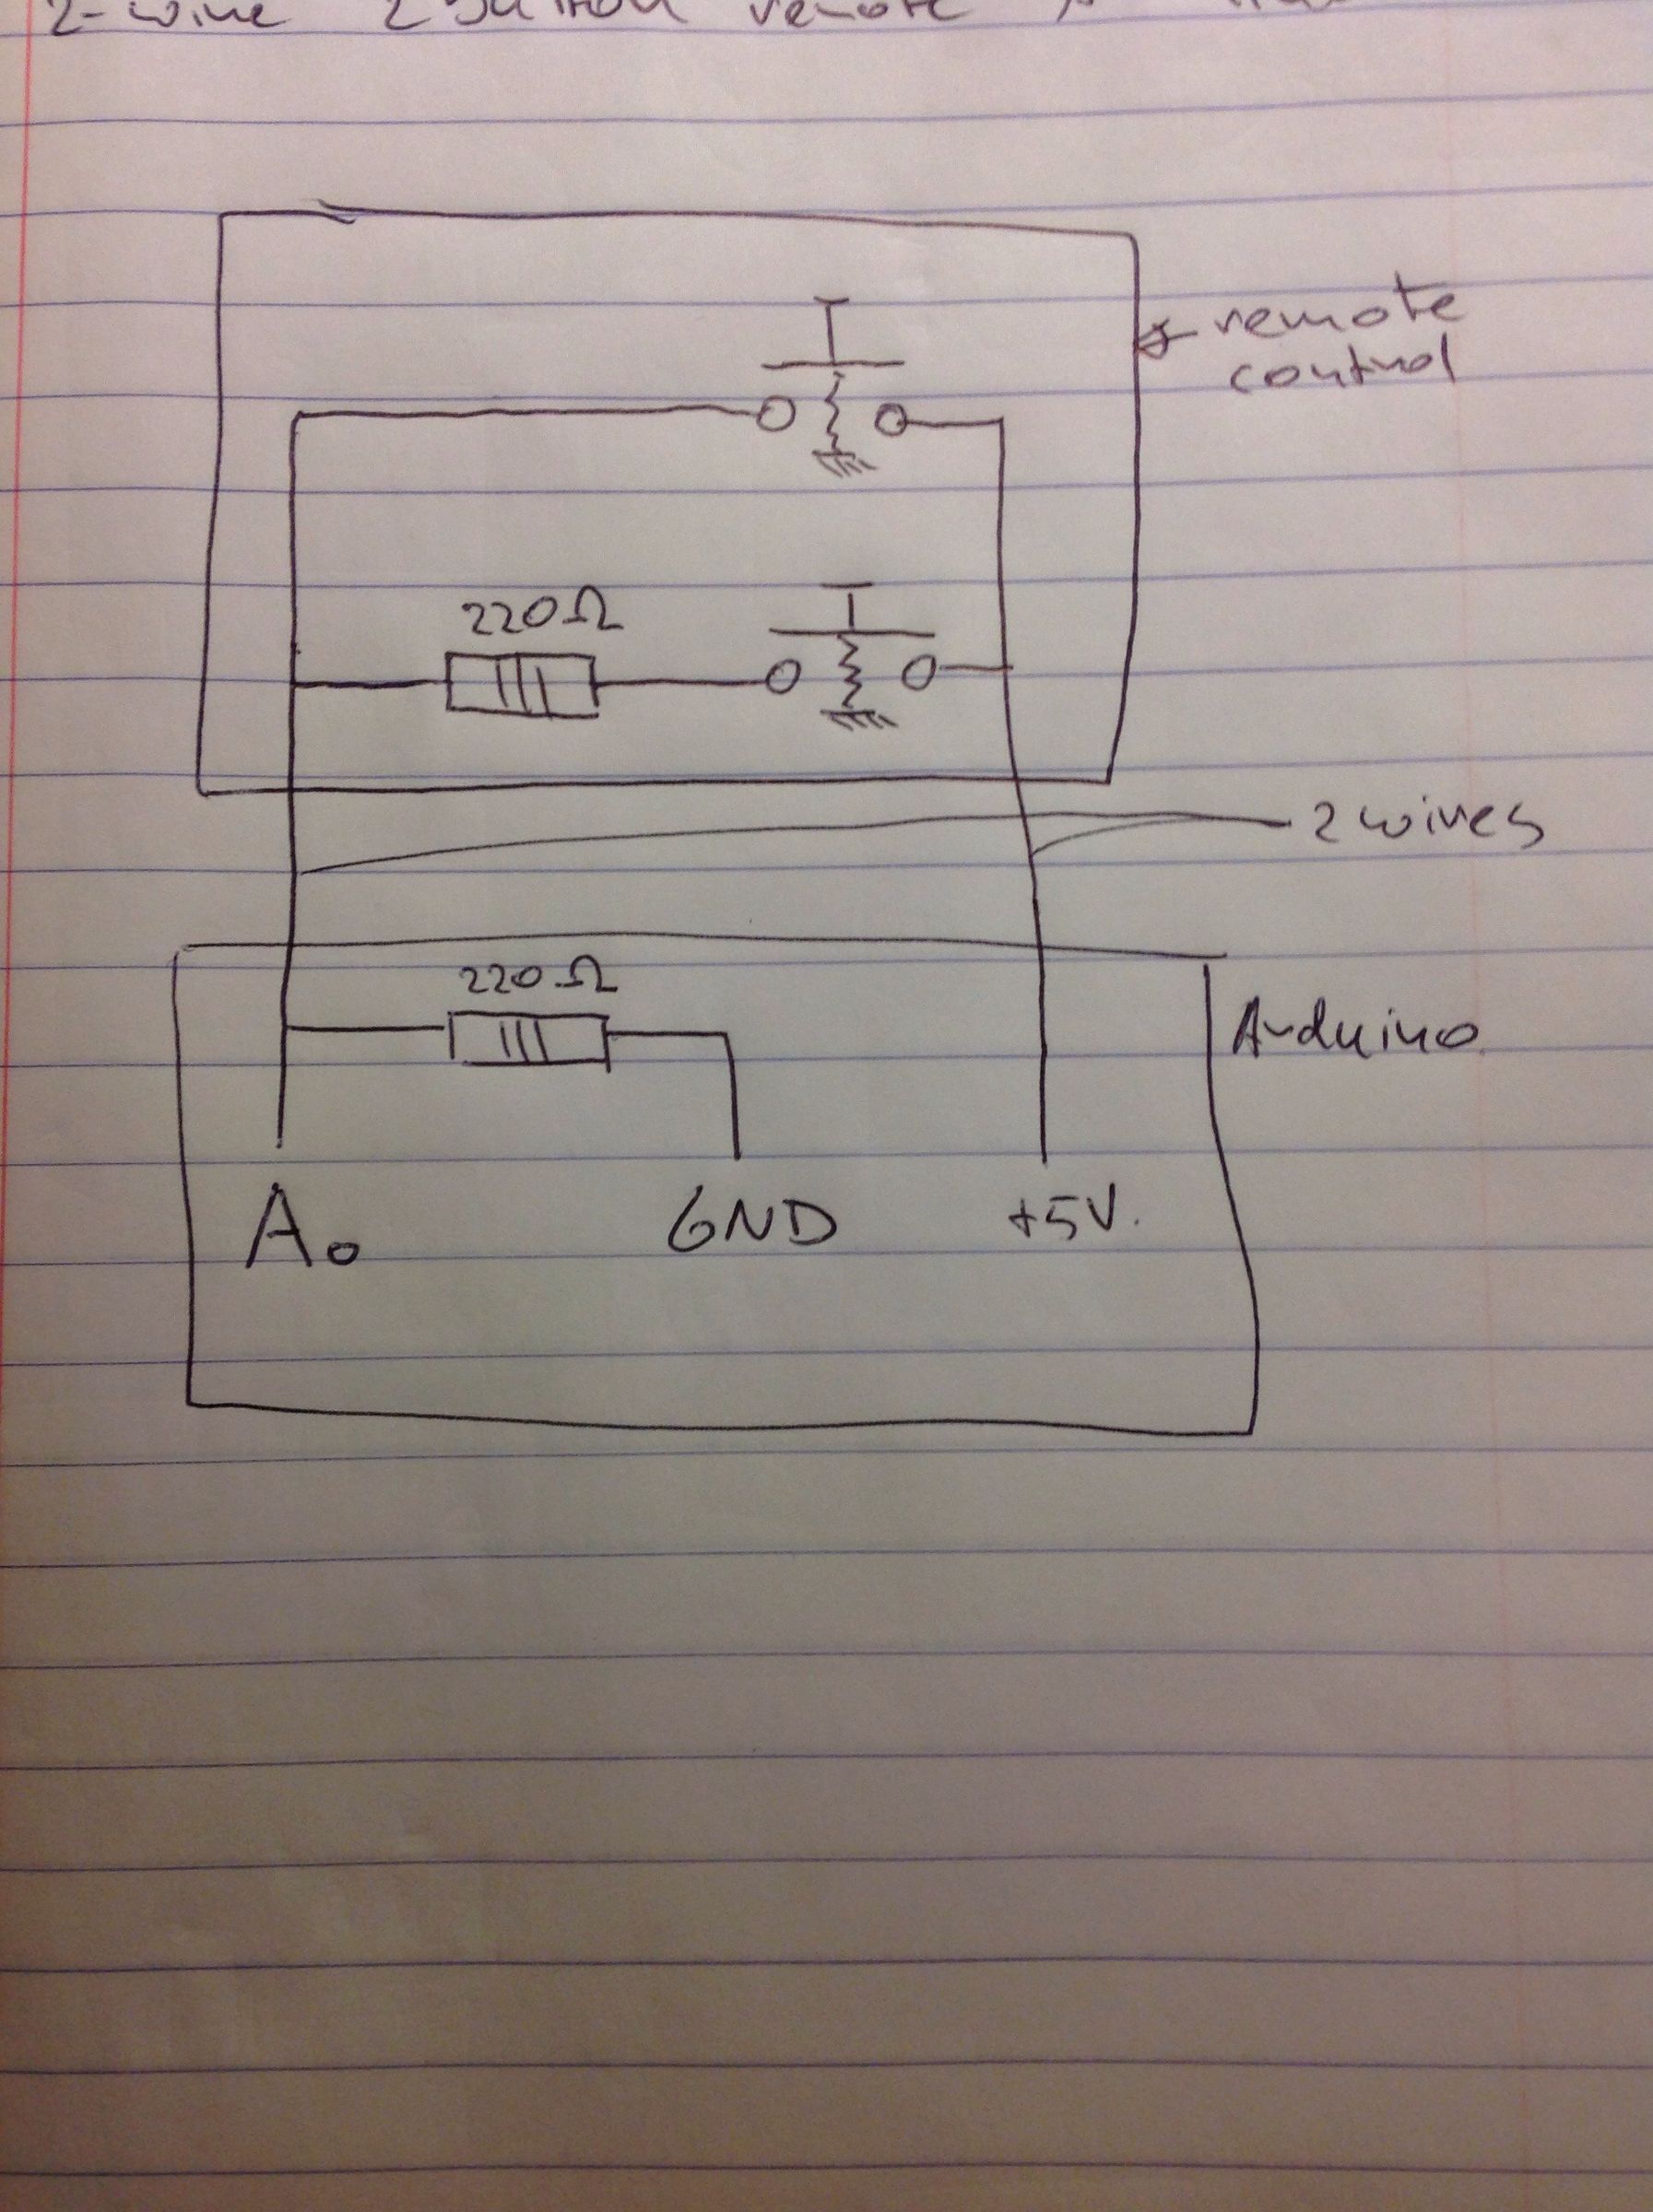 2-wire 2 button remote
remote
control
220Ω
2 wires
220Ω
Arduino
A0
GND
+5V.